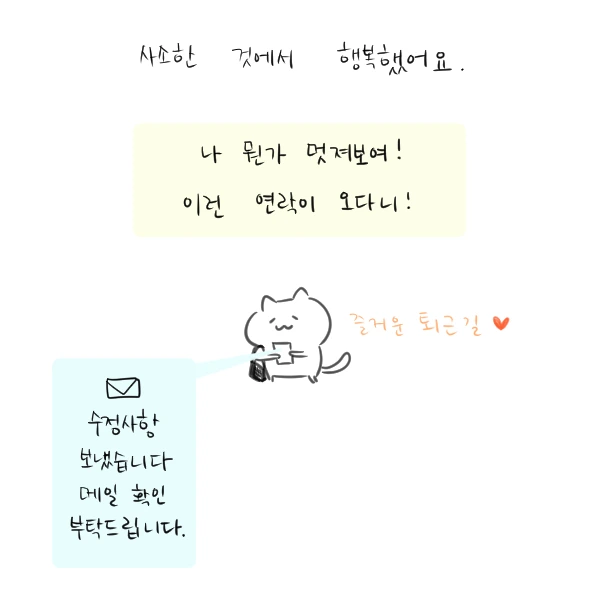 사소한 것에서 행복했어요.
나 뭔가 멋져보여!
이런 연락이 오다니!
즐거운 퇴근길
수정사항
보냈습니다
메일 확인
부탁드립니다.